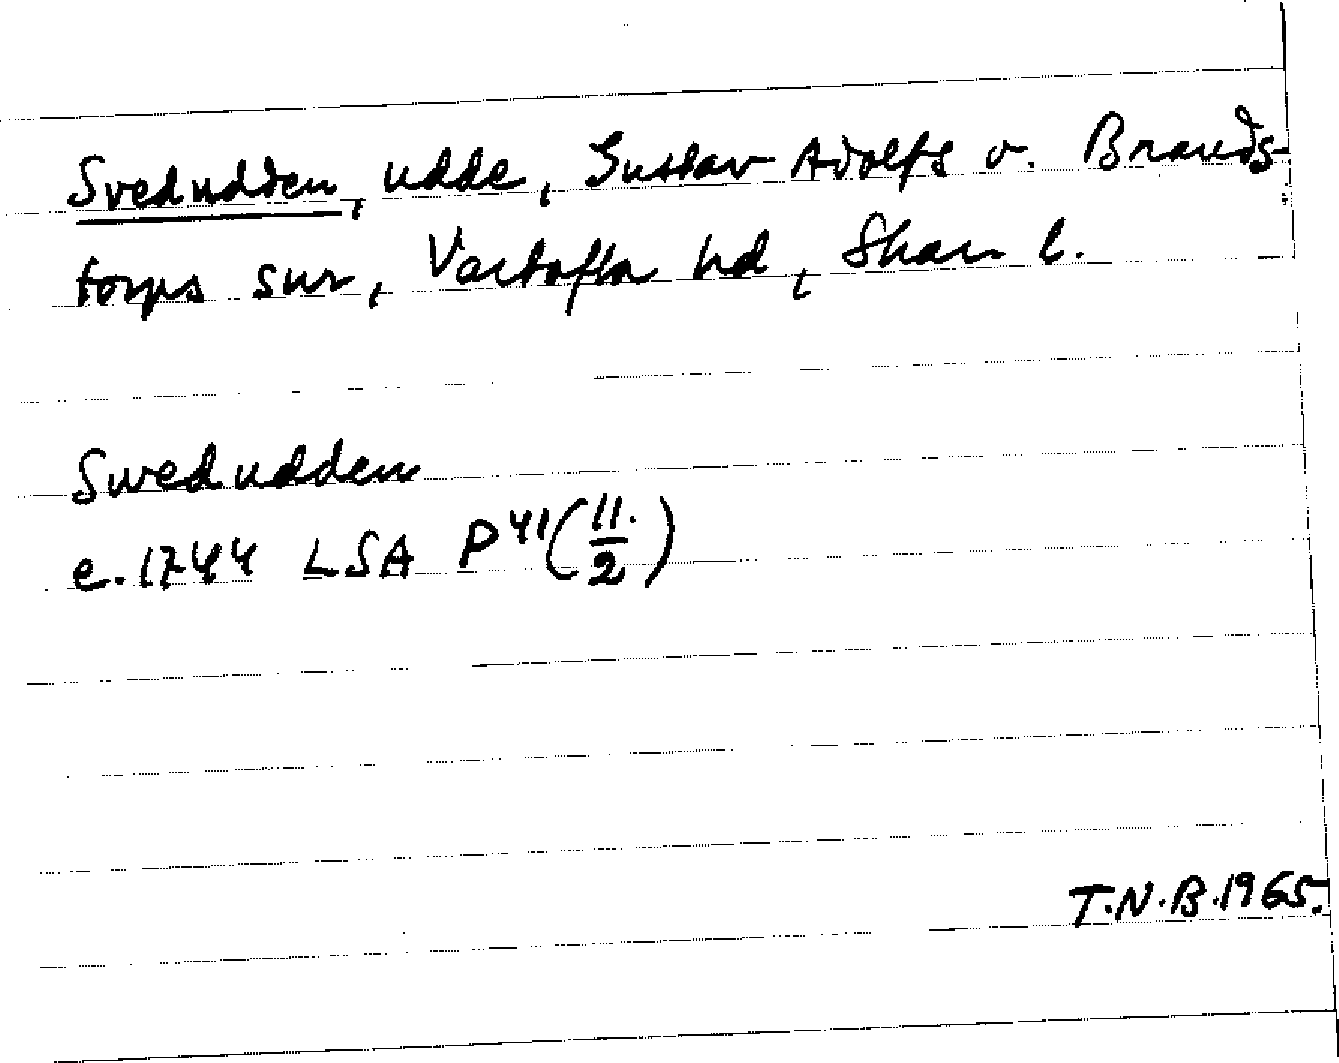 Svedudden, udde, Gustav Adolfs o. Brands-
torps snr, Vartofta hd, Skar. l.
Swedudden
e. 1744 LSA P41 (11./2)
T.N.B. 1965.